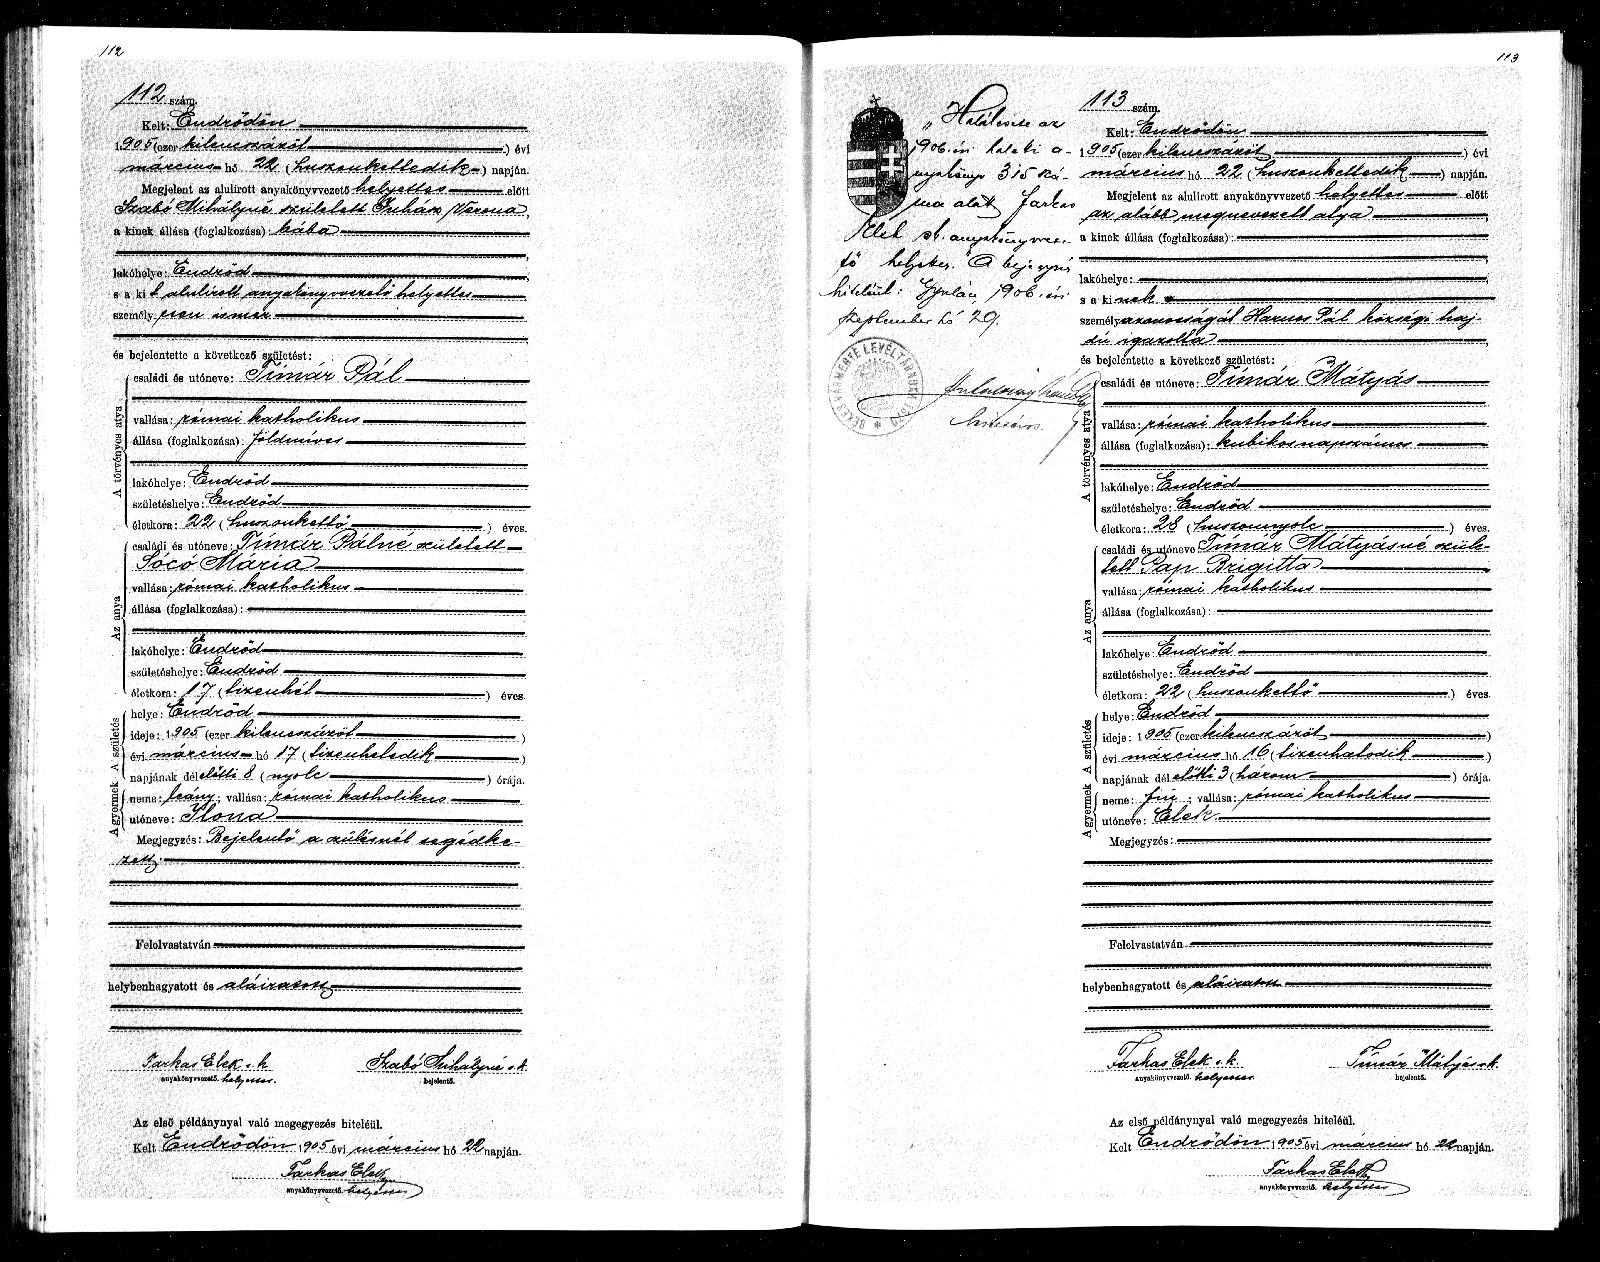 112
112 szám.
Kelt: Endrődön
1905 (ezer kilenczszázöt) évi
márczius hó 22 (huszonkettedik) napján.
Megjelent az alulirott anyakönyvvezető helyettes előtt
Szabó Mihályné született Juhász Verona,
a kinek állása (foglalkozása): bába
lakóhelye: Endrőd
s a kit alulirott anyakönyvvezető helyettes
személyesen ismer
és bejelentette a következő születést:
A törvényes atya
családi és utóneve: Tímár Pál
vallása: római katholikus
állása (foglalkozása): földmíves
lakóhelye: Endrőd
születéshelye: Endrőd
életkora: 22 (huszonkettő) éves.
Az anya
családi és utóneve: Tímár Pálné született
Sócó Mária
vallása: római katholikus
állása (foglalkozása):
lakóhelye: Endrőd
születéshelye: Endrőd
életkora: 17 (tizenhét) éves.
A születés
helye: Endrőd
ideje: 1905 (ezer kilenczszázöt)
évi márczius hó 17 (tizenhetedik)
napjának délelőtti 8 (nyolc) órája.
A gyermek
neme: leány; vallása: római katholikus
utóneve: Ilona
Megjegyzés: Bejelentő a szülésnél segédke-
zett.
Felolvastatván
helybenhagyatott és aláiratott
Farkas Elek s. k.
anyakönyvvezető. helyettes.
Szabó Mihályné s. k.
bejelentő.
Az első példánynyal való megegyezés hiteléül.
Kelt Endrődön 1905 évi márczius hó 22 napján.
Farkas Elek
anyakönyvvezető. helyettes
113
„Halálesete az
1906. évi halotti a-
nyakönyv 315 szá-
ma alatt Farkas
Elek sk. anyakönyvveze-
tő helyettes." A bejegyzés
hiteléül: Gyulán, 1906. évi
szeptember hó 29.
BÉKÉS VÁRMEGYE LEVÉLTÁRNOKA
113 szám.
Kelt: Endrődön
1905 (ezer kilenczszázöt) évi
márczius hó 22 (huszonkettedik) napján.
Megjelent az alulirott anyakönyvvezető helyettes előtt
az alább megnevezett atya
a kinek állása (foglalkozása):
lakóhelye:
s a kinek
személyazonosságát Harnos Pál községi haj-
dú igazolta
és bejelentette a következő születést:
A törvényes atya
családi és utóneve: Tímár Mátyás
vallása: római katholikus
állása (foglalkozása): kubikos napszámos
lakóhelye: Endrőd
születéshelye: Endrőd
életkora: 28 (huszonnyolc) éves.
Az anya
családi és utóneve Tímár Mátyásné szüle-
tett Pap Brigitta
vallása: római katholikus
állása (foglalkozása):
lakóhelye: Endrőd
születéshelye: Endrőd
életkora: 22 (huszonkettő) éves.
A születés
helye: Endrőd
ideje: 1905 (ezer kilenczszázöt)
évi márczius hó 16 (tizenhatodik)
napjának délelőtti 3 (három) órája.
A gyermek
neme: fiú; vallása: római katholikus
utóneve: Elek
Megjegyzés:
Felolvastatván
helybenhagyatott és aláiratott
Farkas Elek s. k.
anyakönyvvezető. helyettes
Tímár Mátyás s. k.
bejelentő.
Az első példánynyal való megegyezés hiteléül.
Kelt Endrődön 1905 évi márczius hó 22 napján.
Farkas Elek
anyakönyvvezető. helyettes